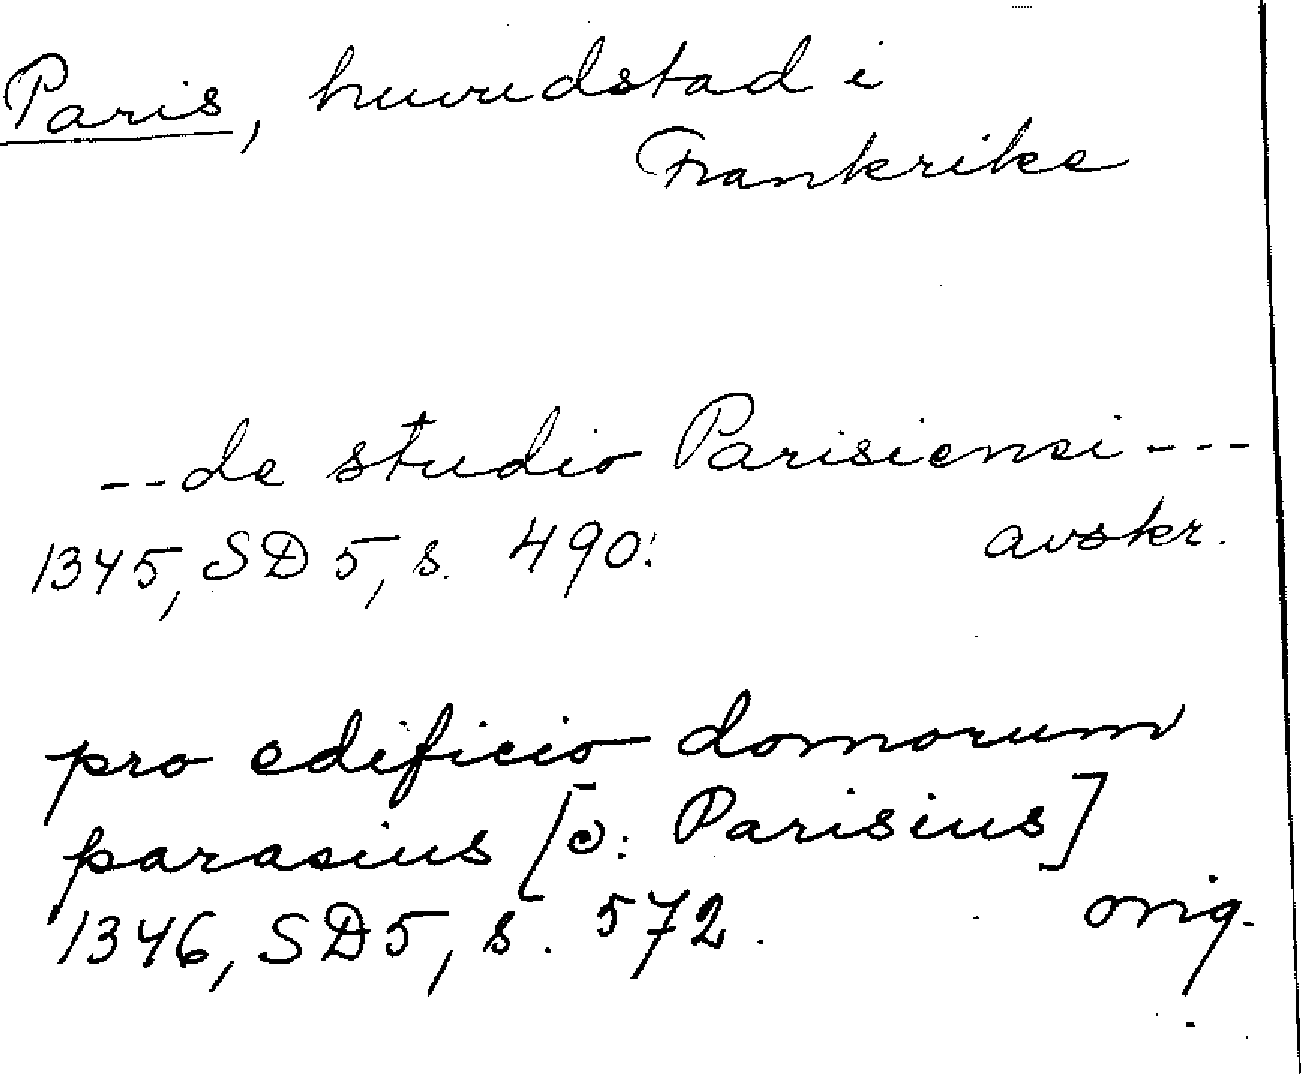 Paris, huvudstad i
Frankrike
-- de studio Parisiensi ---
1345, SD 5, s. 490. avskr.
pro edificio domorum
parasius [ɔ: Parisius]
1346, SD5, s. 572. orig.